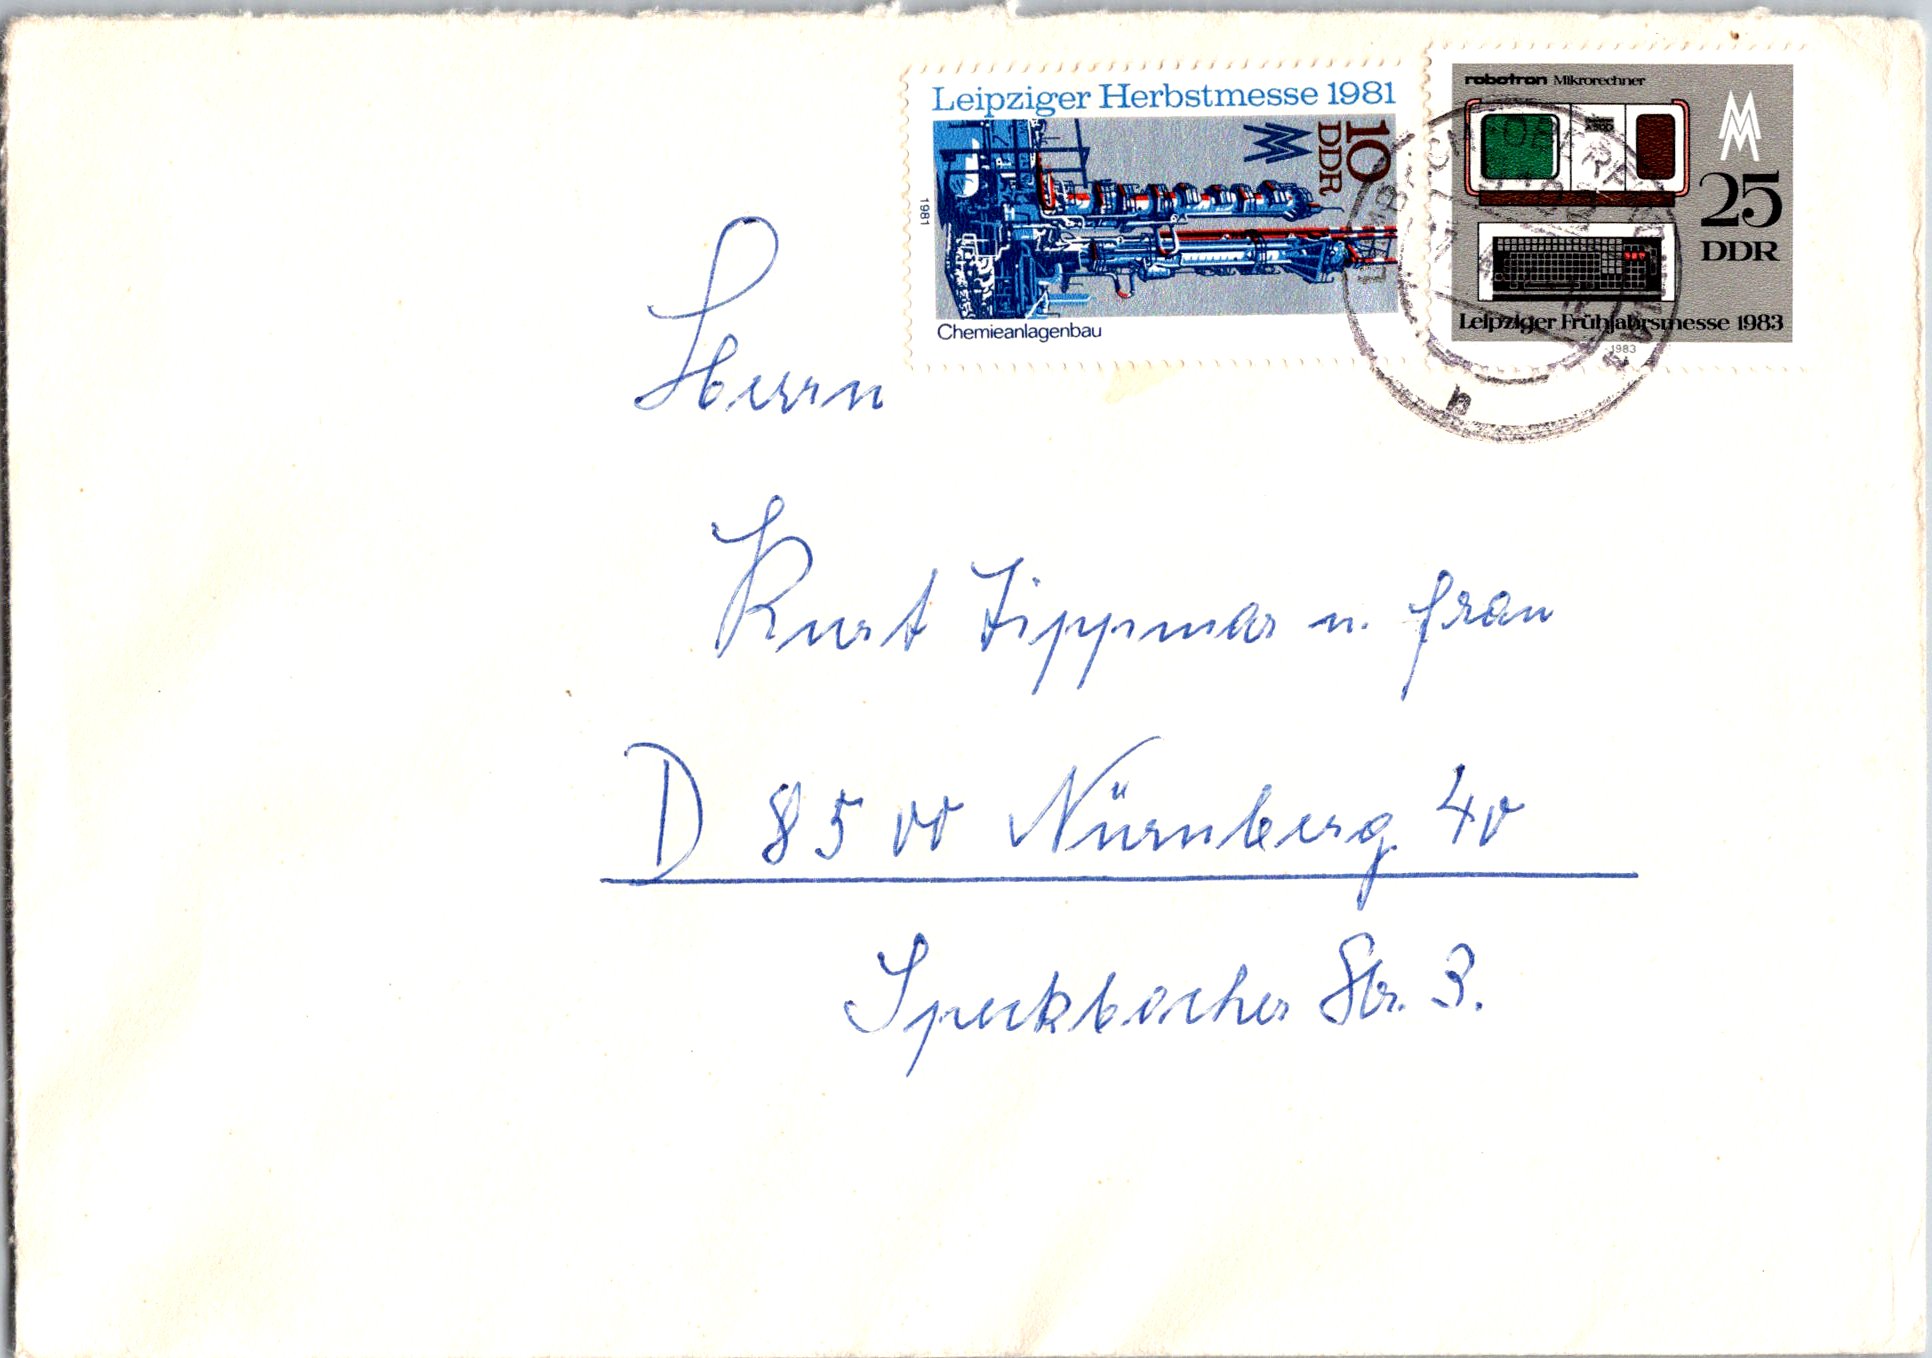 Leipziger Herbstmesse 1981
10
DDR
1981
Chemieanlagenbau
robotron Mikrorechner
25
DDR
Leipziger Frühjahrsmesse 1983
1983
Herrn
Kurt Tippmar u. Frau
D 8500 Nürnberg 40
Speckbacher Str. 3.